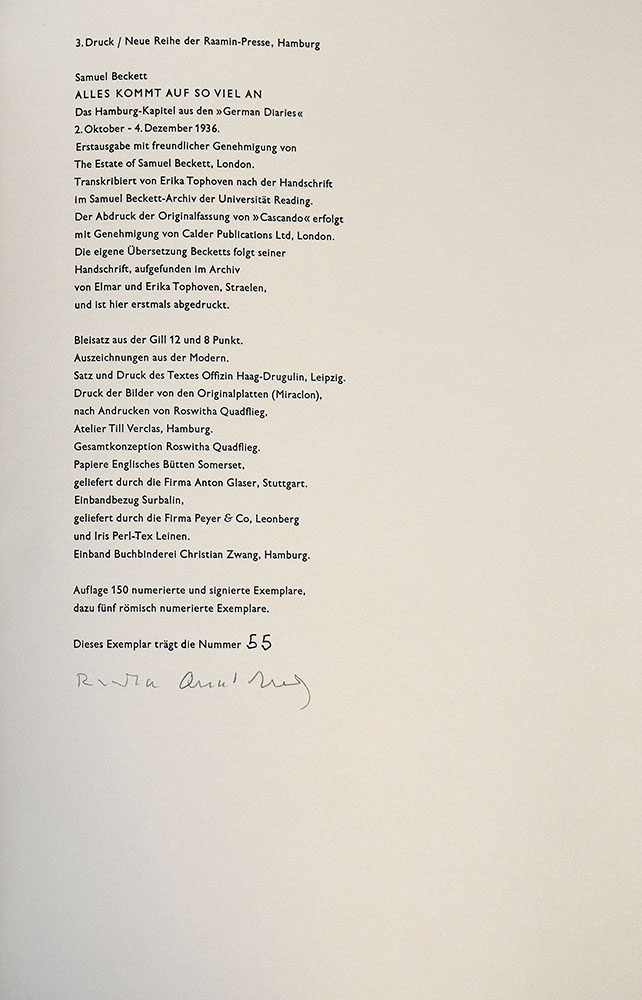 3. Druck / Neue Reihe der Raamin-Presse, Hamburg
Samuel Beckett
ALLES KOMMT AUF SO VIEL AN
Das Hamburg-Kapitel aus den »German Diaries«
2. Oktober - 4. Dezember 1936.
Erstausgabe mit freundlicher Genehmigung von
The Estate of Samuel Beckett, London.
Transkribiert von Erika Tophoven nach der Handschrift
im Samuel Beckett-Archiv der Universität Reading.
Der Abdruck der Originalfassung von »Cascando« erfolgt
mit Genehmigung von Calder Publications Ltd, London.
Die eigene Übersetzung Becketts folgt seiner
Handschrift, aufgefunden im Archiv
von Elmar und Erika Tophoven, Straelen,
und ist hier erstmals abgedruckt.
Bleisatz aus der Gill 12 und 8 Punkt.
Auszeichnungen aus der Modern.
Satz und Druck des Textes Offizin Haag-Drugulin, Leipzig.
Druck der Bilder von den Originalplatten (Miraclon),
nach Andrucken von Roswitha Quadflieg,
Atelier Till Verclas, Hamburg.
Gesamtkonzeption Roswitha Quadflieg.
Papiere Englisches Bütten Somerset,
geliefert durch die Firma Anton Glaser, Stuttgart.
Einbandbezug Surbalin,
geliefert durch die Firma Peyer & Co, Leonberg
und Iris Perl-Tex Leinen.
Einband Buchbinderei Christian Zwang, Hamburg.
Auflage 150 numerierte und signierte Exemplare,
dazu fünf römisch numerierte Exemplare.
Dieses Exemplar trägt die Nummer 55